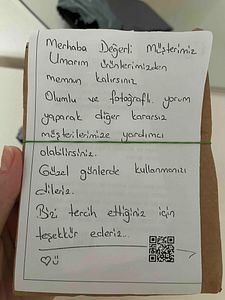 Merhaba Değerli Müşterimiz
Umarım ürünlerimizden
memnun kalırsınız
Olumlu ve fotoğraflı yorum
yaparak diğer kararsız
müşterilerimize yardımcı
olabilirsiniz.
Güzel günlerde kullanmanızı
dileriz.
Bizi tercih ettiğiniz için
teşekkür ederiz..